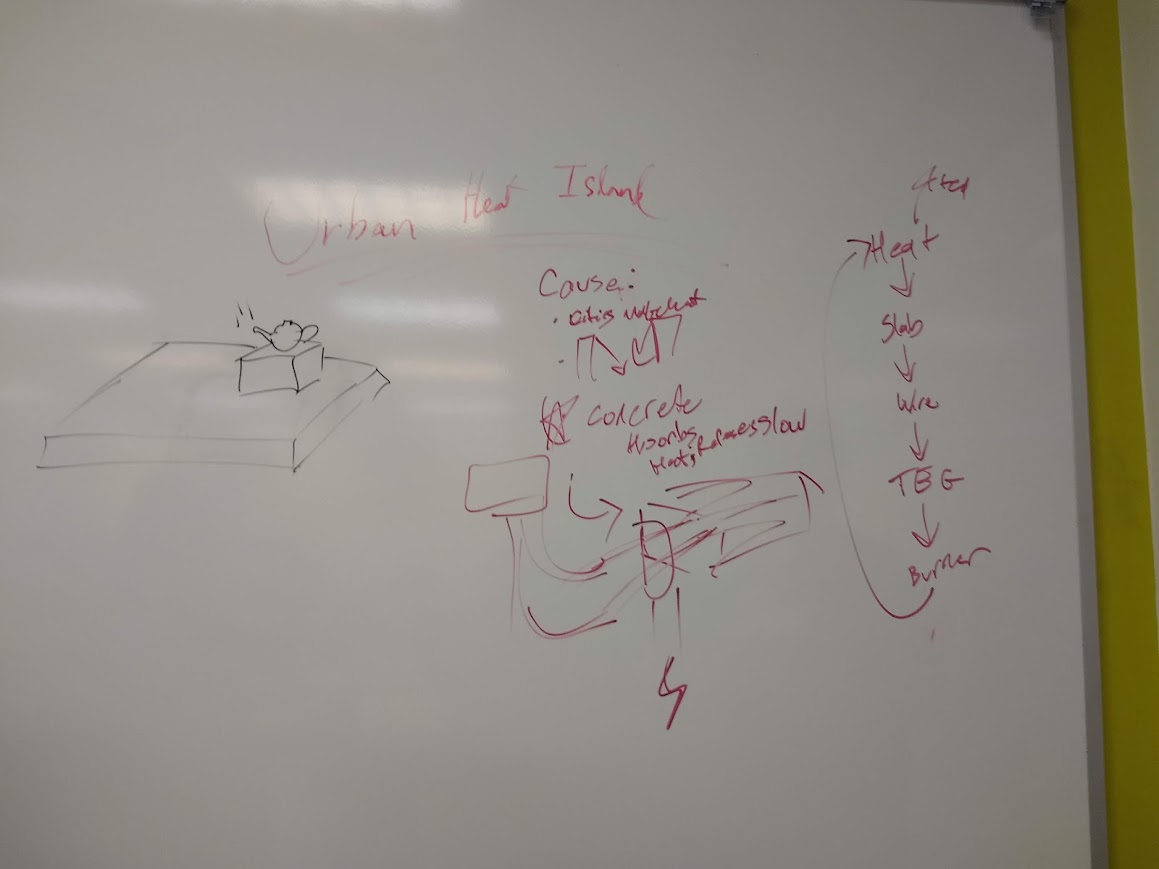 Urban Heat Island
Cause:
Cities
Concrete
Absorbs
Heat, Releases Slow
Heat
Slab
Wire
TEG
Burner